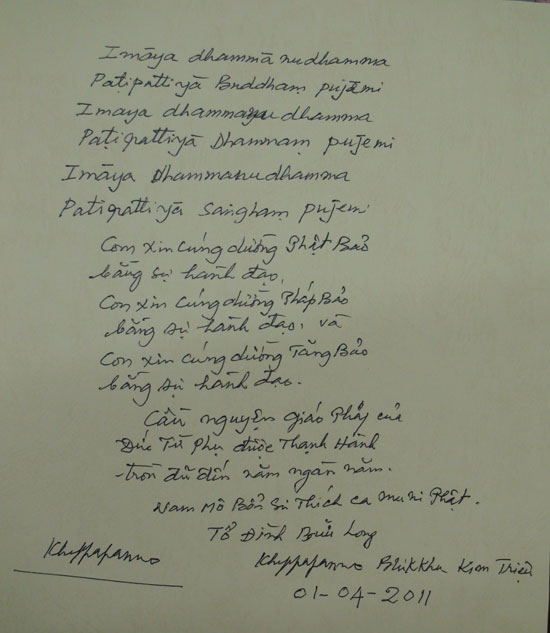 Imāya dhammā nudhamma
Paṭipattiyā Buddhaṃ pujāmi
Imaya dhammanu dhamma
Paṭipattiyā Dhammaṃ pujemi
Imāya Dhammanudhamma
Patipattiyā Sanghaṃ pujemi
Con xin cúng dường Phật Bảo
bằng sự hành đạo,
Con xin cúng dường Pháp Bảo
bằng sự hành đạo, và
Con xin cúng dường Tăng Bảo
bằng sự hành đạo.
Cầu nguyện giáo Pháp của
Đức Từ Phụ được Thạnh Hành
tròn đủ đến năm ngàn năm.
Nam Mô Bổn Sư Thích ca muni Phật.
Tổ Đình Bửu Long
Khippapanno
Khippapanno Bhikkhu Kim Triệu
01-04-2011